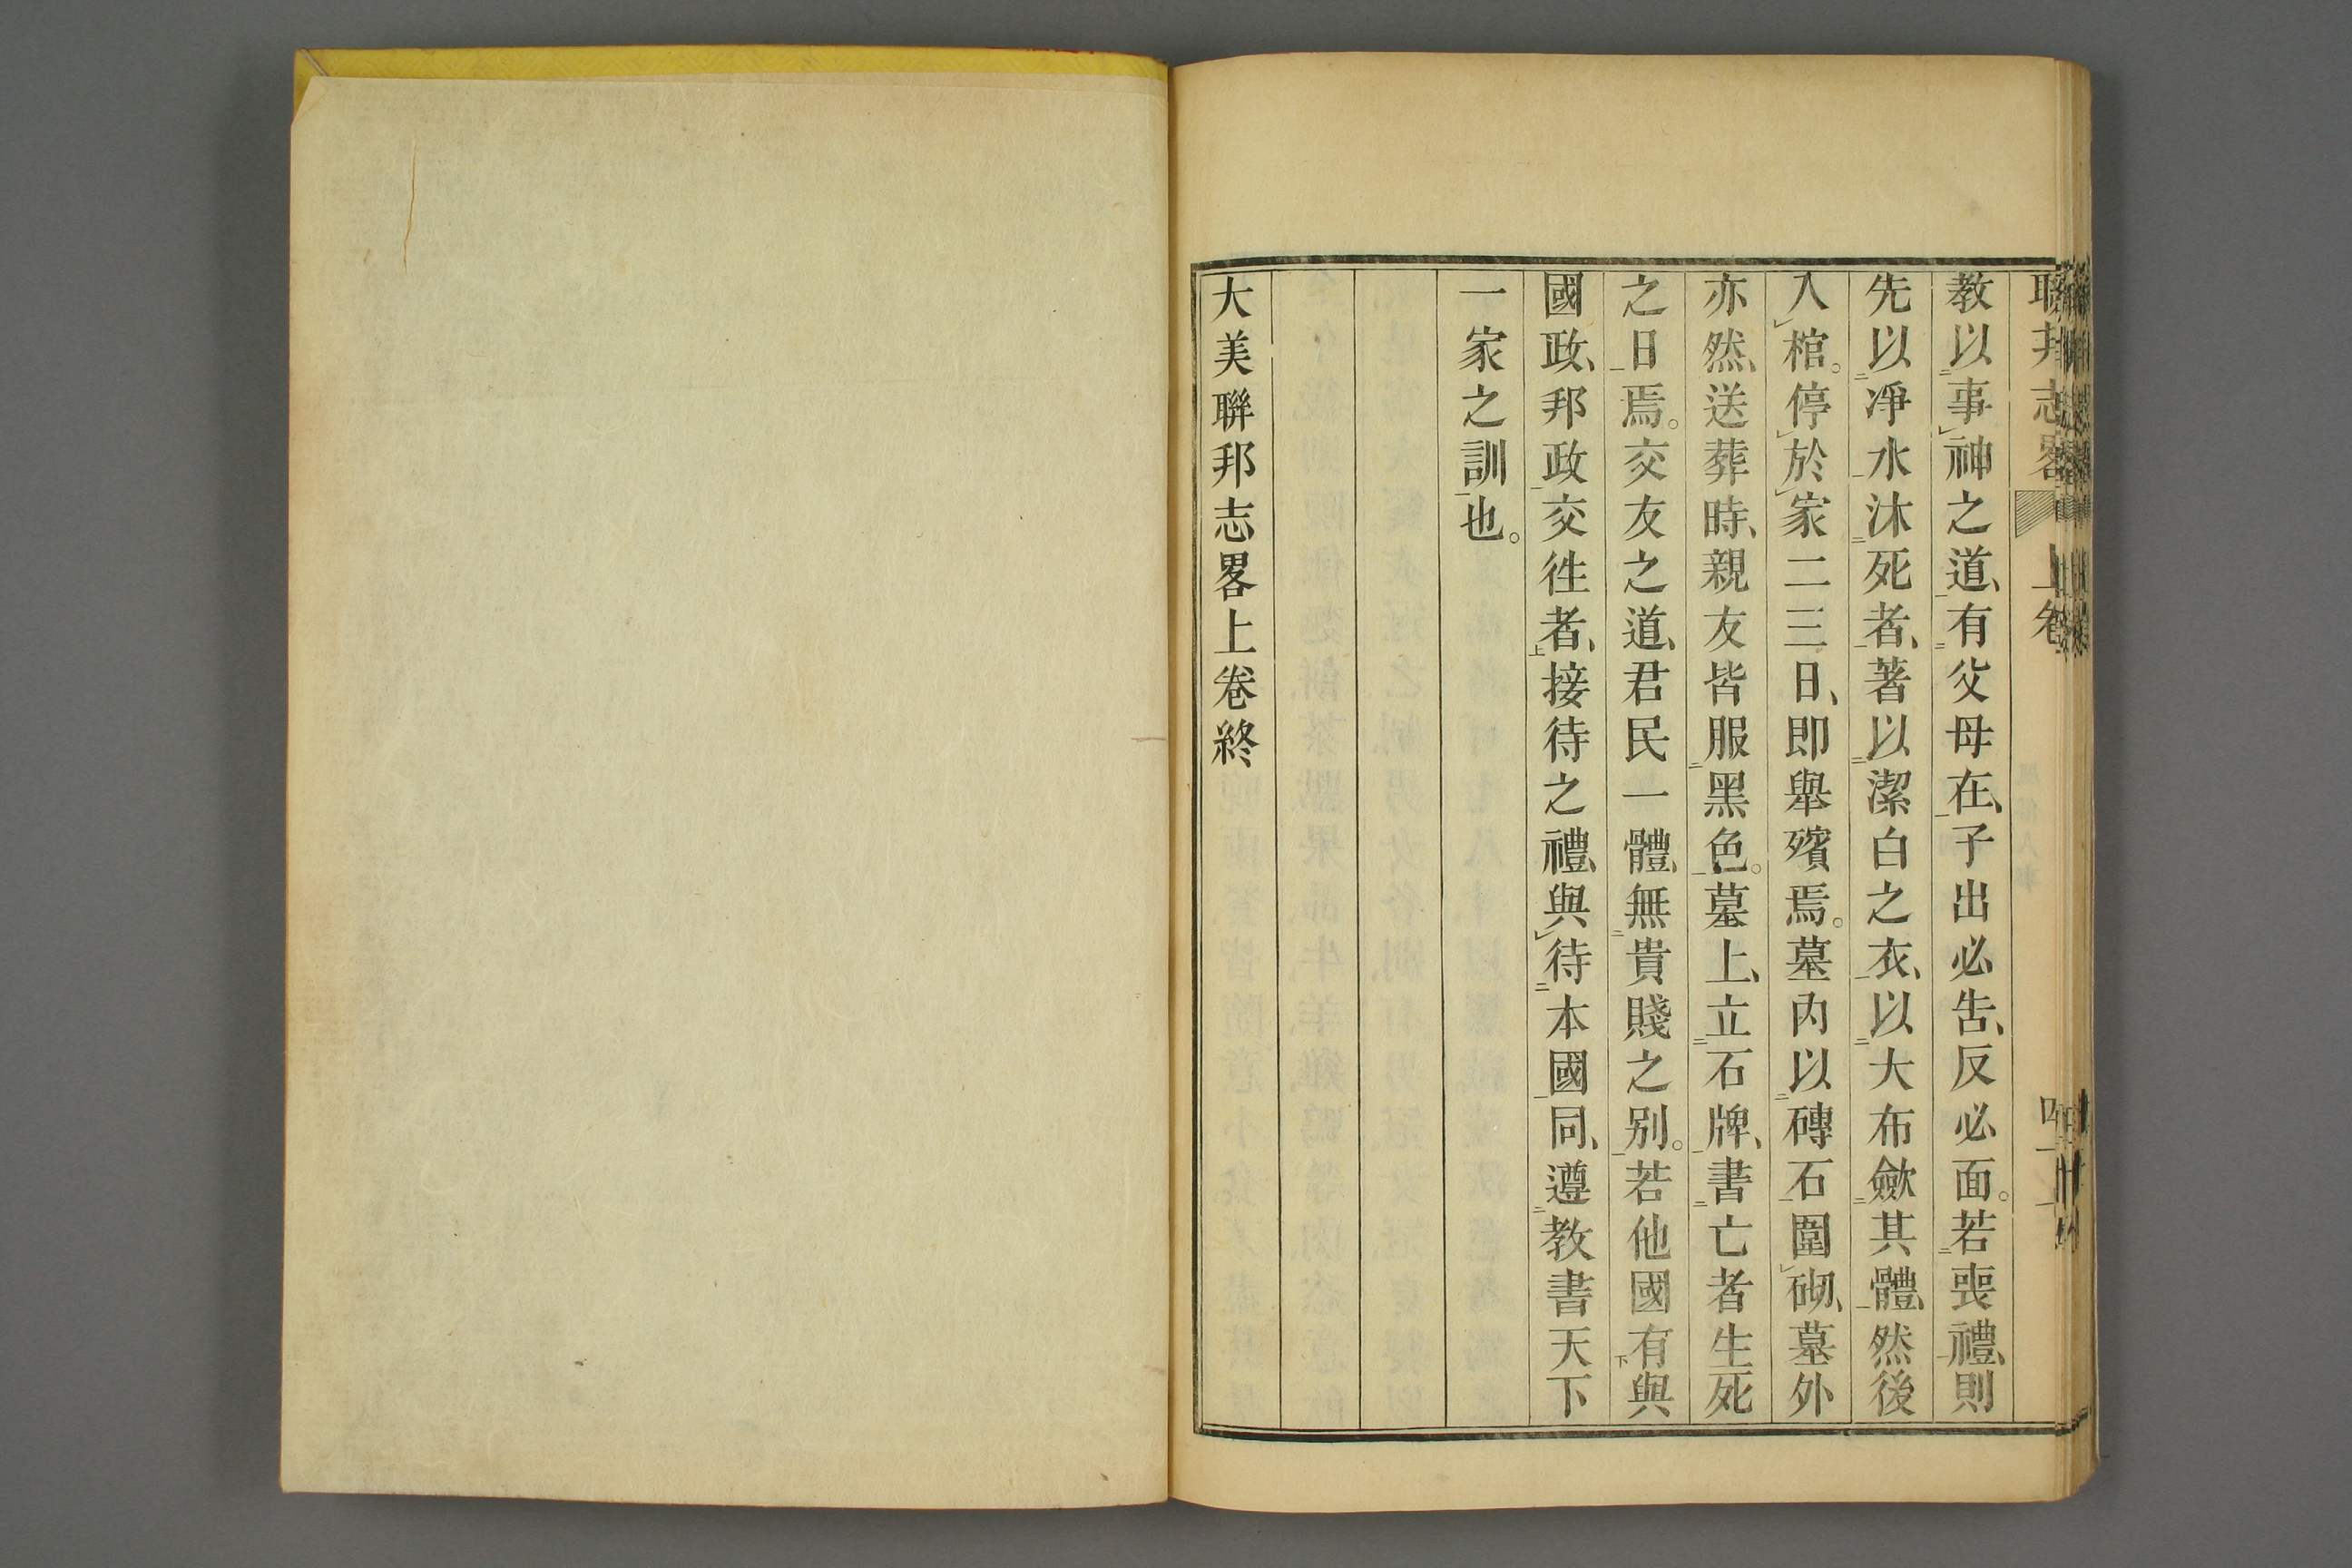 聯邦志畧 上卷
教以事神之道、有父母在、子出必告、反必面。若喪禮、則
先以凈水沐死者、著以潔白之衣、以大布斂其體、然後
入棺。停於家二三日、即舉殯焉。墓內以磚石圍砌、墓外
亦然、送葬時、親友皆服黑色。墓上、立石牌、書亡者生死
之日焉。交友之道、君民一體、無貴賤之别。若他國有與
國政、邦政交徃者、接待之禮、與待本國同、遵教書天下
一家之訓也。
大美聯邦志畧上卷終